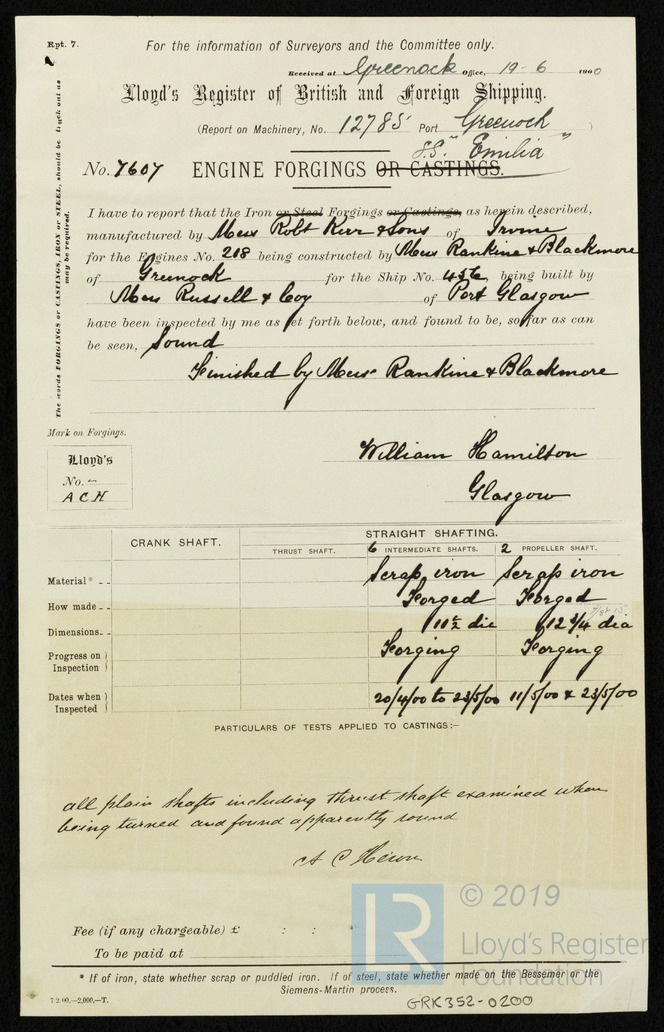 Rpt. 7.
For the information of Surveyors and the Committee only.
Received at Greenock Office, 19-6 1900
Lloyd's Register of British and Foreign Shipping.
(Report on Machinery, No. 12785 Port Greenock)
S.S. "Emilia"
No. 7607 ENGINE FORGINGS OR CASTINGS.
The words FORGINGS or CASTINGS, IRON or STEEL, should be struck out as may be required.
I have to report that the Iron or Steel Forgings or Castings, as herein described,
manufactured by Mess Robt Kerr & Sons of Irvine
for the Engines No. 218 being constructed by Mess Rankine & Blackmore
of Greenock for the Ship No. 456, being built by
Mess Russell & Coy of Port Glasgow
have been inspected by me as set forth below, and found to be, so far as can
be seen, Sound
Finished by Mess Rankine & Blackmore
Mark on Forgings.
Lloyd's
No. -
A C H
William Hamilton
Glasgow
CRANK SHAFT.
STRAIGHT SHAFTING.
THRUST SHAFT. 6 INTERMEDIATE SHAFTS. 2 PROPELLER SHAFT.
Material* Scrap iron Scrap iron
How made Forged Forged
Dimensions 11½ dia 12¾ dia
Progress on Inspection Forging Forging
Dates when Inspected 20/4/00 to 23/5/00 11/5/00 & 23/5/00
PARTICULARS OF TESTS APPLIED TO CASTINGS:—
all plain shafts including thrust shaft examined when
being turned and found apparently sound
A C Heron
Fee (if any chargeable) £ : :
To be paid at
* If of iron, state whether scrap or puddled iron. If of steel, state whether made on the Bessemer or the
Siemens-Martin process.
7 2.00.—2,000.—T.
GRK352-0200
LR
© 2019
Lloyd's Register
Foundation